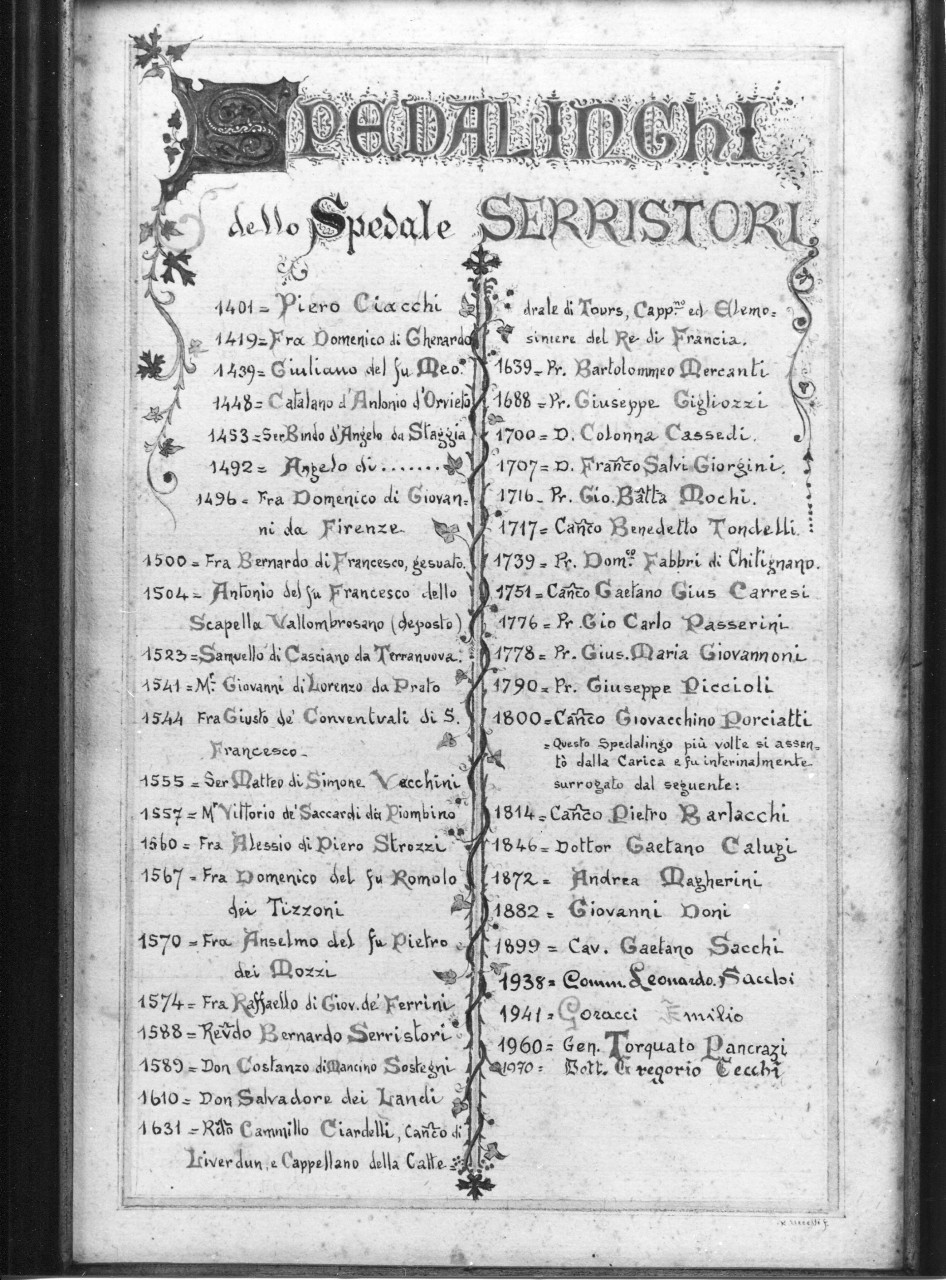 SPEDALINGHI
dello Spedale SERRISTORI
1401 = Piero Ciacchi
1419 = Fra Domenico di Gherardo
1439 = Giuliano del fu Meo.
1448 = Catalano d'Antonio d'Orvieto
1453 = Ser Bindo d'Angelo da Staggia
1492 = Angelo di ........
1496 = Fra Domenico di Giovan=
ni da Firenze
1500 = Fra Bernardo di Francesco, gesuato.
1504 = Antonio del fu Francesco dello
Scapella Vallombrosano (deposto)
1523 = Samuello di Casciano da Terranuova.
1541 = Mr. Giovanni di Lorenzo da Prato
1544 Fra Giusto de' Conventuali di S.
Francesco -
1555 = Ser Matteo di Simone Vecchini
1557 = Mr Vittorio de' Saccardi da Piombino
1560 = Fra Alessio di Piero Strozzi
1567 - Fra Domenico del fu Romolo
dei Tizzoni
1570 = Fra Anselmo del fu Pietro
dei Mozzi
1574 = Fra Raffaello di Giov. de' Ferrini
1588 = Revdo Bernardo Serristori
1589 = Don Costanzo di Mancino Sostegni
1610 = Don Salvadore dei Landi
1631 = Rdto Cammillo Ciardelli, Canco di
Liverdun, e Cappellano della Catte=
drale di Tours, Capp.no ed Elemo=
siniere del Re di Francia.
1639 = Pr. Bartolommeo Mercanti
1688 = Pr. Giuseppe Gigliozzi
1700 = D. Colonna Cassedi.
1707 = D. Franco Salvi Giorgini.
1716 - Pr. Gio. Batta Mochi.
1717 = Canco Benedetto Tondelli.
1739 = Pr. Dom.co Fabbri di Chitignano.
1751 = Canco Gaetano Gius Carresi
1776 = Pr. Gio Carlo Passerini
1778 = Pr. Gius. Maria Giovannoni
1790 = Pr. Giuseppe Piccioli
1800 = Canco Giovacchino Porciatti
= Questo Spedalingo più volte si assen=
tò dalla Carica e fu interinalmente
surrogato dal seguente:
1814 = Canco Pietro Barlacchi
1846 = Dottor Gaetano Calugi
1872 = Andrea Magherini
1882 = Giovanni Doni
1899 = Cav. Gaetano Sacchi
1938 = Comm. Leonardo. Sacchi
1941 = Coracci Emilio
1960 = Gen. Torquato Pancrazi
1970 = Dott. Gregorio Cecchi